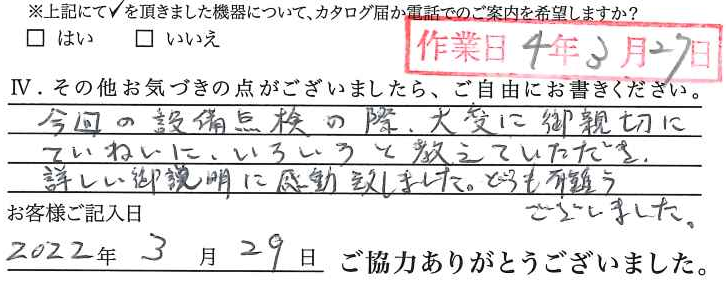 ※上記にて✓を頂きました機器について、カタログ届か電話でのご案内を希望しますか？
□ はい □ いいえ
作業日 4年3月27日
Ⅳ．その他お気づきの点がございましたら、ご自由にお書きください。
今回の設備点検の際、大変に御親切に
ていねいに、いろいろと教えていただき、
詳しい御説明に感動致しました。どうも有難う
ございました。
お客様ご記入日
2022年 3月 29日 ご協力ありがとうございました。